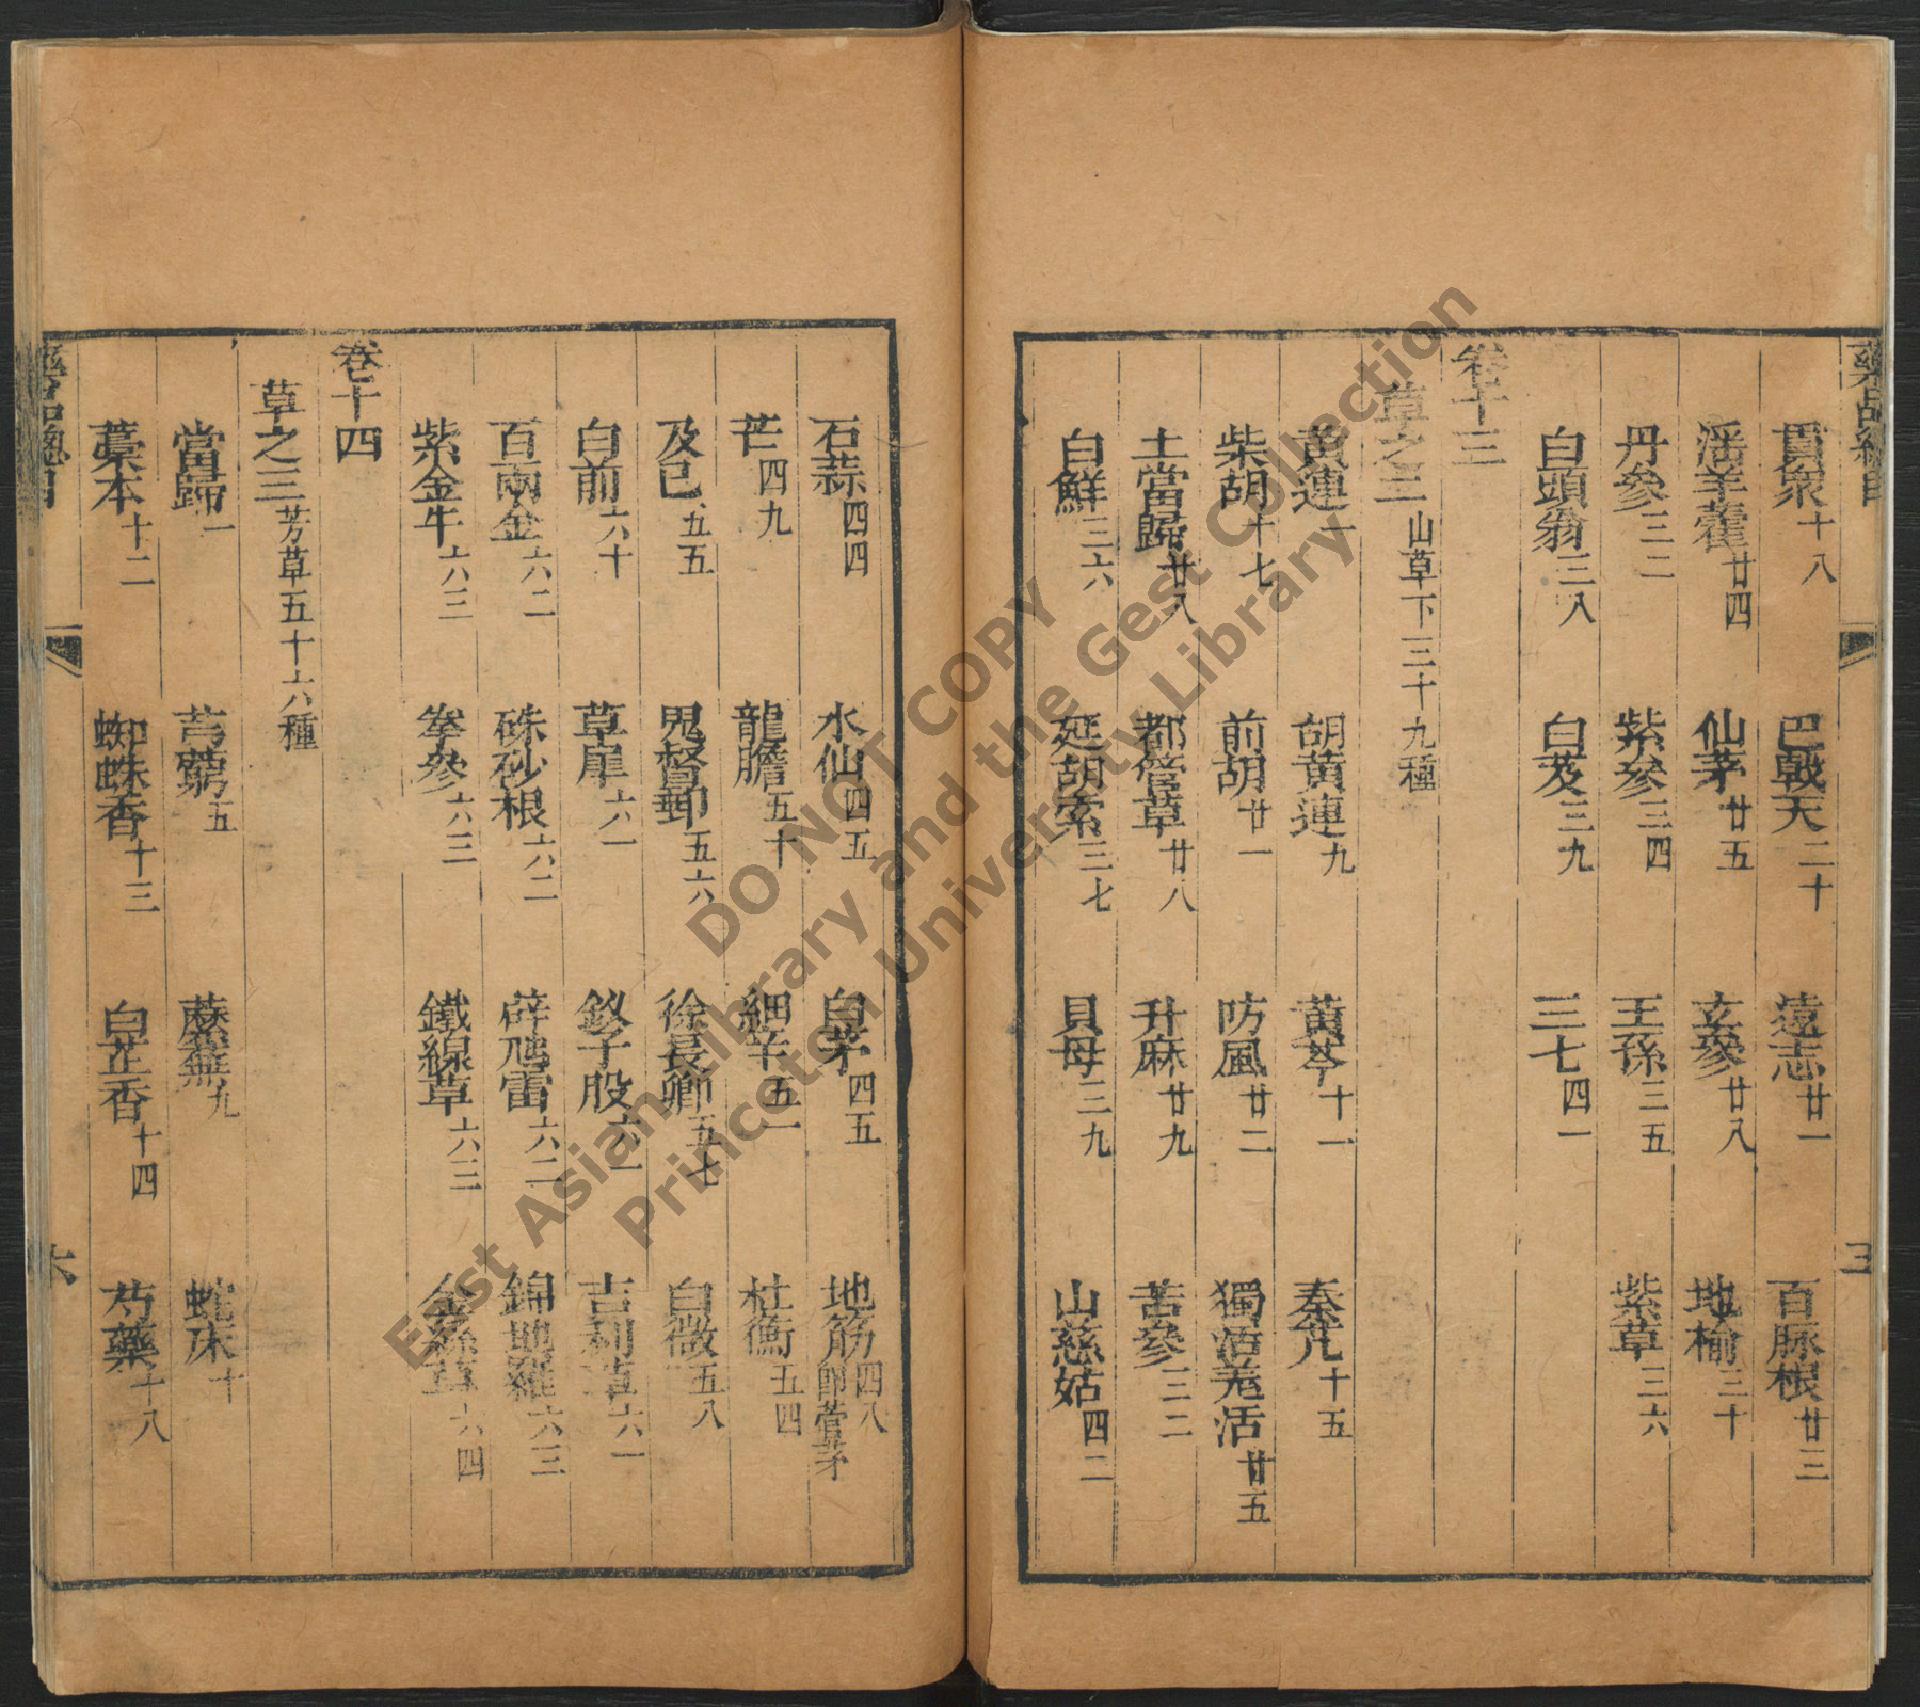 藥品總目
貫衆十八 巴戟天二十 遠志廿一 百脉根廿三
淫羊藿廿四 仙茅廿五 玄參廿八 地榆三十
丹參三二 紫參三四 王孫三五 紫草三六
白頭翁三八 白芨三九 三七四一
卷十三
草之二山草下三十九種
黃連一 胡黃連九 黃芩十一 秦艽十五
柴胡十七 前胡廿一 防風廿二 獨活羌活廿五
土當歸廿八 都管草廿八 升麻廿九 苦參三二
白鮮三六 延胡索三七 貝母三九 山慈姑四二
石蒜四四 水仙四五 白茅四五 地筋四八即菅茅
芒四九 龍膽五十 細辛五一 杜蘅五四
及已五五 鬼督郵五六 徐長卿五七 白薇五八
白前六十 草犀六一 釵子股六一 吉利草六一
百兩金六二 硃砂根六二 辟虺雷六二 錦地羅六三
紫金牛六三 拳參六三 鐵線草六三 金絲草六四
卷十四
草之三芳草五十六種
當歸一 芎藭五 蘼蕪九 蛇床十
藁本十二 蜘蛛香十三 白芷香十四 芍藥十八
藥品總目
六
DO NOT COPY
East Asian Library and the Gest Collection
Princeton University Library